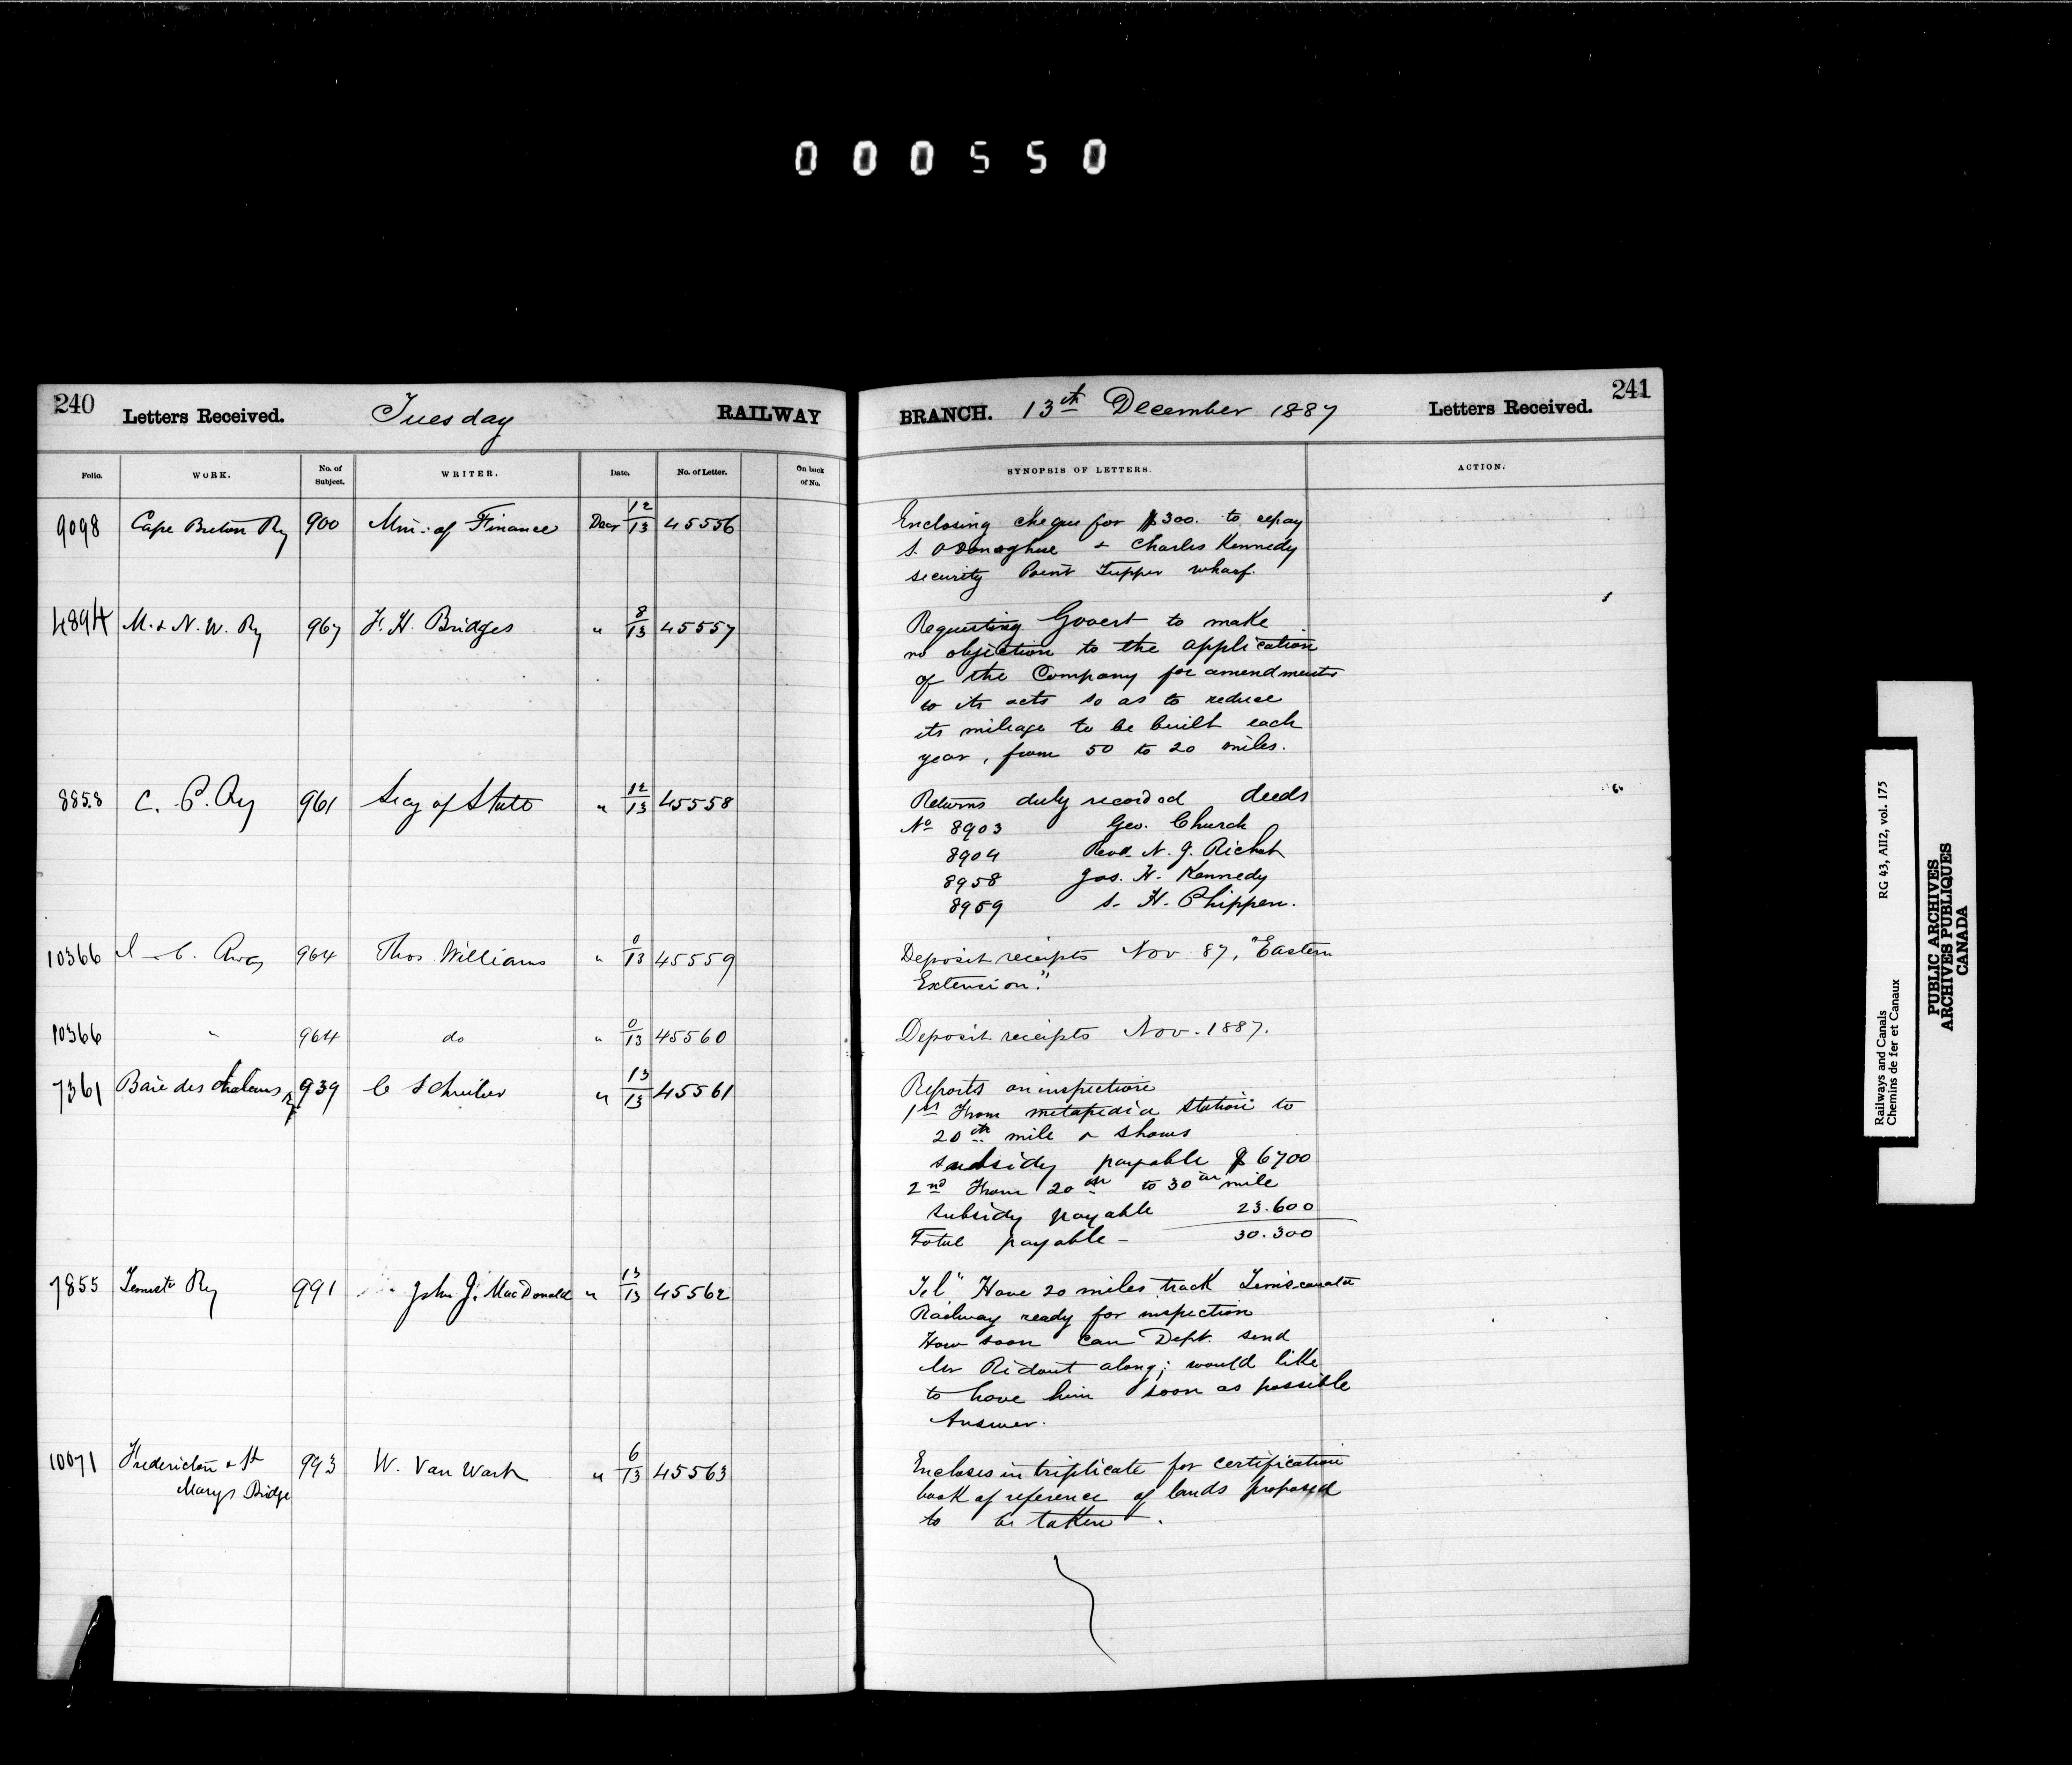 000550
240 Letters Received. Tuesday RAILWAY
BRANCH. 13th December 1887 Letters Received. 241
Folio. WORK. No. of Subject. WRITER. Date. No. of Letter. On back of No.
SYNOPSIS OF LETTERS. ACTION.
9098 Cape Breton Ry 900 Min: of Finance Decr 12/13 45556
Enclosing cheque for $300. to repay
S. O'Donoghue & Charles Kennedy
security Point Tupper wharf.
4894 M. & N. W. Ry 967 F. H. Bridges " 8/13 45557
Requesting Govert to make
no objection to the application
of the Company for amendments
to its acts so as to reduce
its mileage to be built each
year, from 50 to 20 miles.
8858 C. P. Ry 961 Secy of State " 12/13 45558
Returns duly recorded deeds
No 8903 Geo. Church
8904 Revd. N. J. Richot
8958 Jas. H. Kennedy
8959 S. H. Phippen.
10366 I. C. Rway 964 Thos. Williams " 0/13 45559
Deposit receipts Nov. 87, "Eastern
Extension."
10366 " 964 do " 0/13 45560
Deposit receipts Nov. 1887.
7361 Baie des Chaleurs Ry 939 C Schreiber " 13/13 45561
Reports on inspection
1st From metapedia station to
20th mile & shows
subsidy payable $6700
2nd From 20th to 30th mile
subsidy payable 23.600
Total payable - 30.300
7855 Temista Ry 991 John J. MacDonald " 13/13 45562
Tel" Have 20 miles track Temiscouata
Railway ready for inspection
How soon can Dept. send
Mr Ridout along; would like
to have him soon as possible
Answer.
10071 Fredericton & St Marys Bridge 993 W. Van Wart " 6/13 45563
Encloses in triplicate for certification
book of reference of lands proposed
to be taken.
Railways and Canals RG 43, AII2, vol. 175
Chemins de fer et Canaux
PUBLIC ARCHIVES
ARCHIVES PUBLIQUES
CANADA